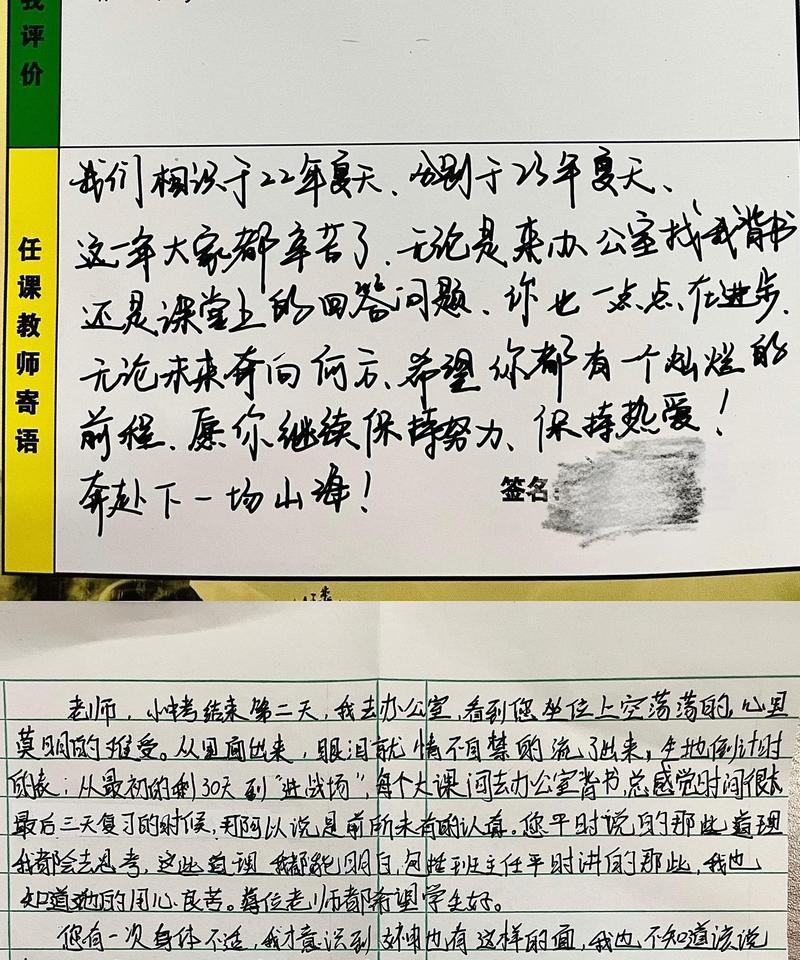 我评价
任课教师寄语
我们相识于22年夏天、分别于23年夏天、
这一年大家都辛苦了、无论是来办公室找我背书
还是课堂上的回答问题、你也一点点在进步、
无论未来奔向何方、希望你都有一个灿烂的
前程、愿你继续保持努力、保持热爱！
奔赴下一场山海！
签名：
老师，小中考结束第二天，我去办公室，看到您坐位上空荡荡的，心里
莫明的难受。从里面出来，眼泪就情不自禁的流了出来，生地倒计时
的表；从最初的剩30天到“进战场”，每个大课间去办公室背书，总感觉时间很太
最后三天复习的时候，可以说是前所未有的认真。您平时说的那些道理
我都会去思考，这些道理我都能明白，包括班主任平时讲的那些，我也
知道她的用心良苦。每位老师都希望学生好。
您有一次身体不适，我才意识到女神也有这样的面，我也不知道该说